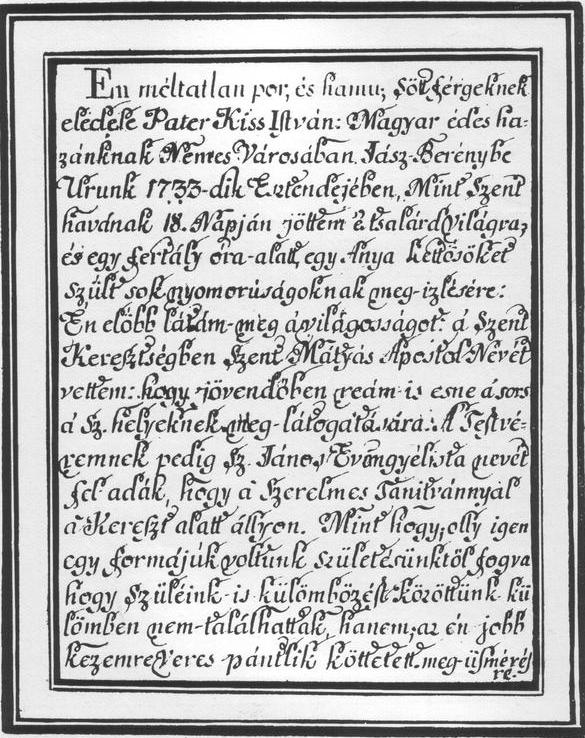 En méltatlan por, és hamu, Sőt férgeknek
eledele Pater Kiss István: Magyar édes ha-
zánknak Nemes Városában, Jász-Berénybe
Urunk 1733-dik Esztendejében, Mint Szent
havának 18. Napján jöttem e tsalárd Világra,
és egy fertály óra-alatt, egy Anya kettősöket
szült sok nyomorúságoknak meg-izlésére:
En előbb látám-meg á világosságot: á Szent
Keresztségben Szent Mátyás Apostol Nevét
vettem: hogy jövendőben reám-is esne á sors
á Sz. helyeknek meg-látogatására: A Testvé-
remnek pedig Sz. János Evangyélista nevét
fel adák, hogy á Szerelmes Tanitvánnyal
á Kereszt alatt állyon. Mint hogy, olly igen
egy formájúk voltunk születésünktől fogva
hogy Szüleink-is külömbözést köröttünk kü
lömben nem-találhattak, hanem, az én jobb
kezemre Veres pántlik köttetett meg-üsmérés
re.